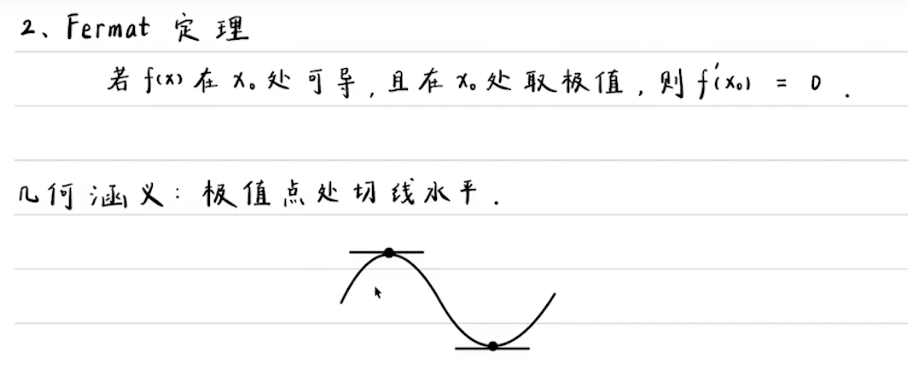 2、Fermat 定理
若 f(x) 在 x₀ 处可导,且在 x₀ 处取极值,则 f'(x₀) = 0 .
几何涵义:极值点处切线水平.